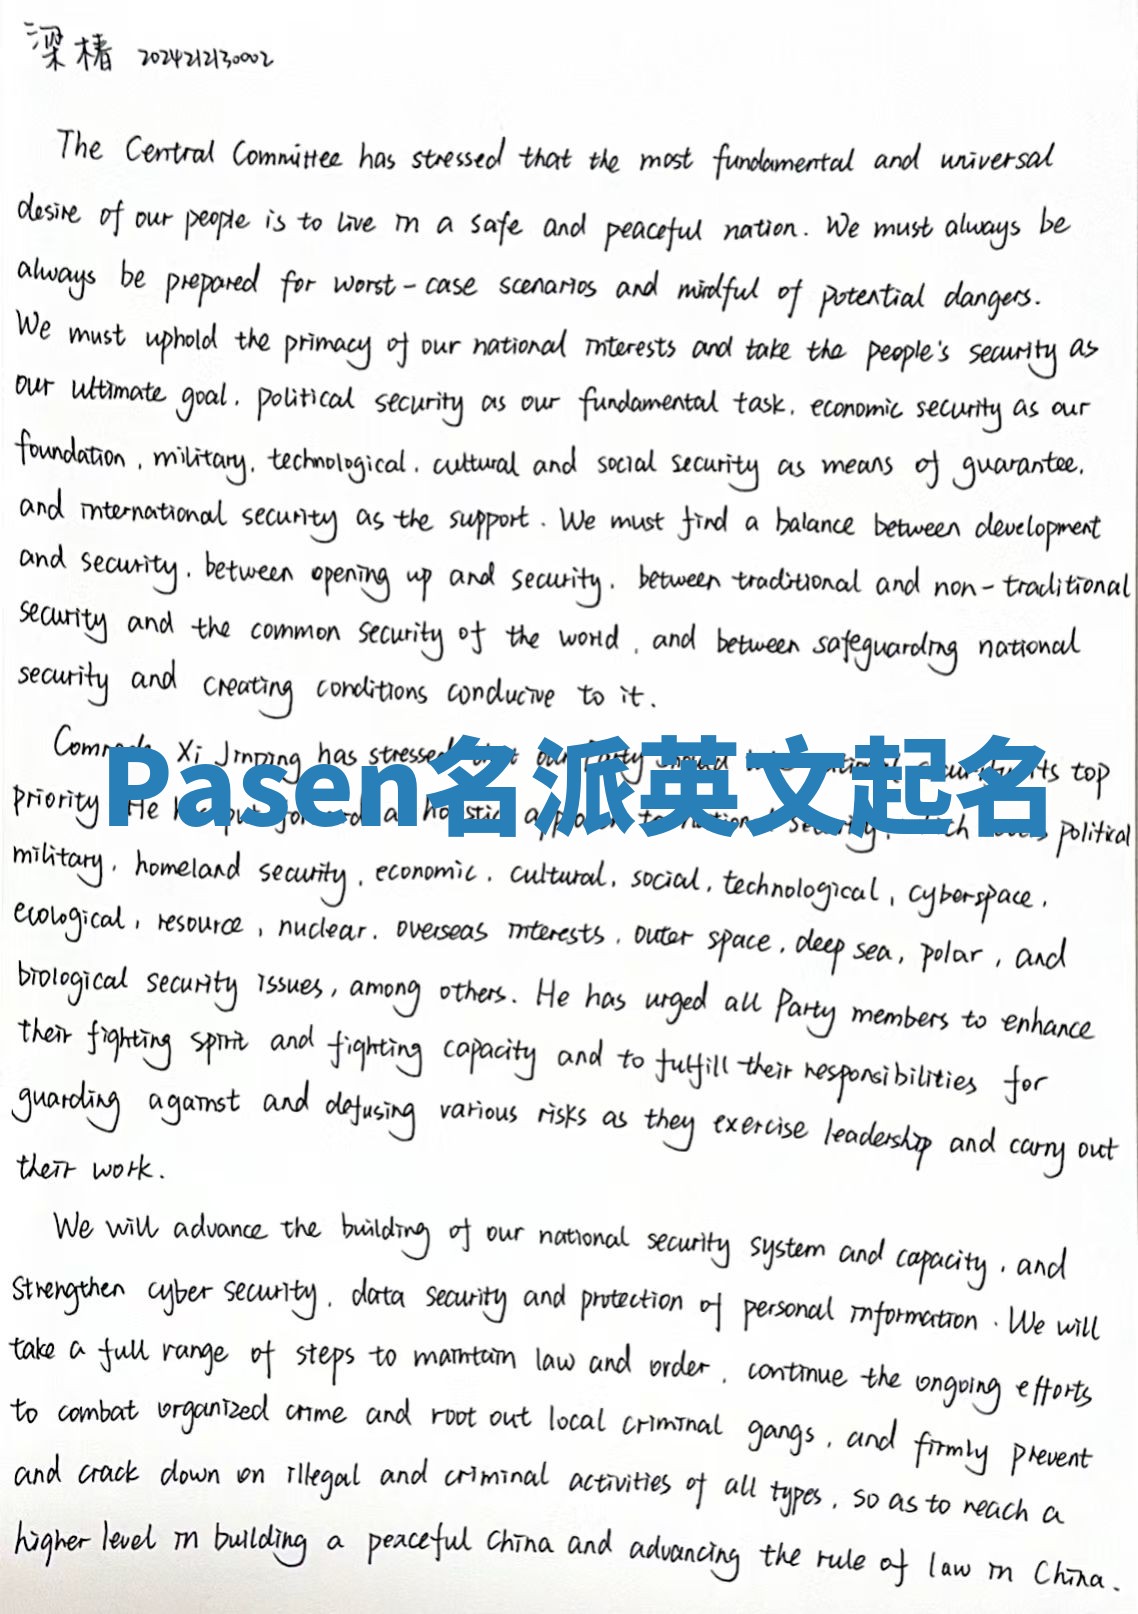 梁椿 2024212130002
The Central Committee has stressed that the most fundamental and universal
desire of our people is to live in a safe and peaceful nation. We must always be
always be prepared for worst-case scenarios and mindful of potential dangers.
We must uphold the primacy of our national interests and take the people's security as
our ultimate goal, political security as our fundamental task, economic security as our
foundation, military, technological, cultural and social security as means of guarantee,
and international security as the support. We must find a balance between development
and security, between opening up and security, between traditional and non-traditional
security and the common security of the world, and between safeguarding national
security and creating conditions conducive to it.
Xi Jinping has stressed our Party its top
Pasen名派英文起名
priority He has put forward a holistic approach to national security, political
military, homeland security, economic, cultural, social, technological, cyberspace,
ecological, resource, nuclear, overseas interests, outer space, deep sea, polar, and
biological security issues, among others. He has urged all Party members to enhance
their fighting spirit and fighting capacity and to fulfill their responsibilities for
guarding against and defusing various risks as they exercise leadership and carry out
their work.
We will advance the building of our national security system and capacity, and
strengthen cyber security, data security and protection of personal information. We will
take a full range of steps to maintain law and order, continue the ongoing efforts
to combat organized crime and root out local criminal gangs, and firmly prevent
and crack down on illegal and criminal activities of all types, so as to reach a
higher level in building a peaceful China and advancing the rule of law in China.